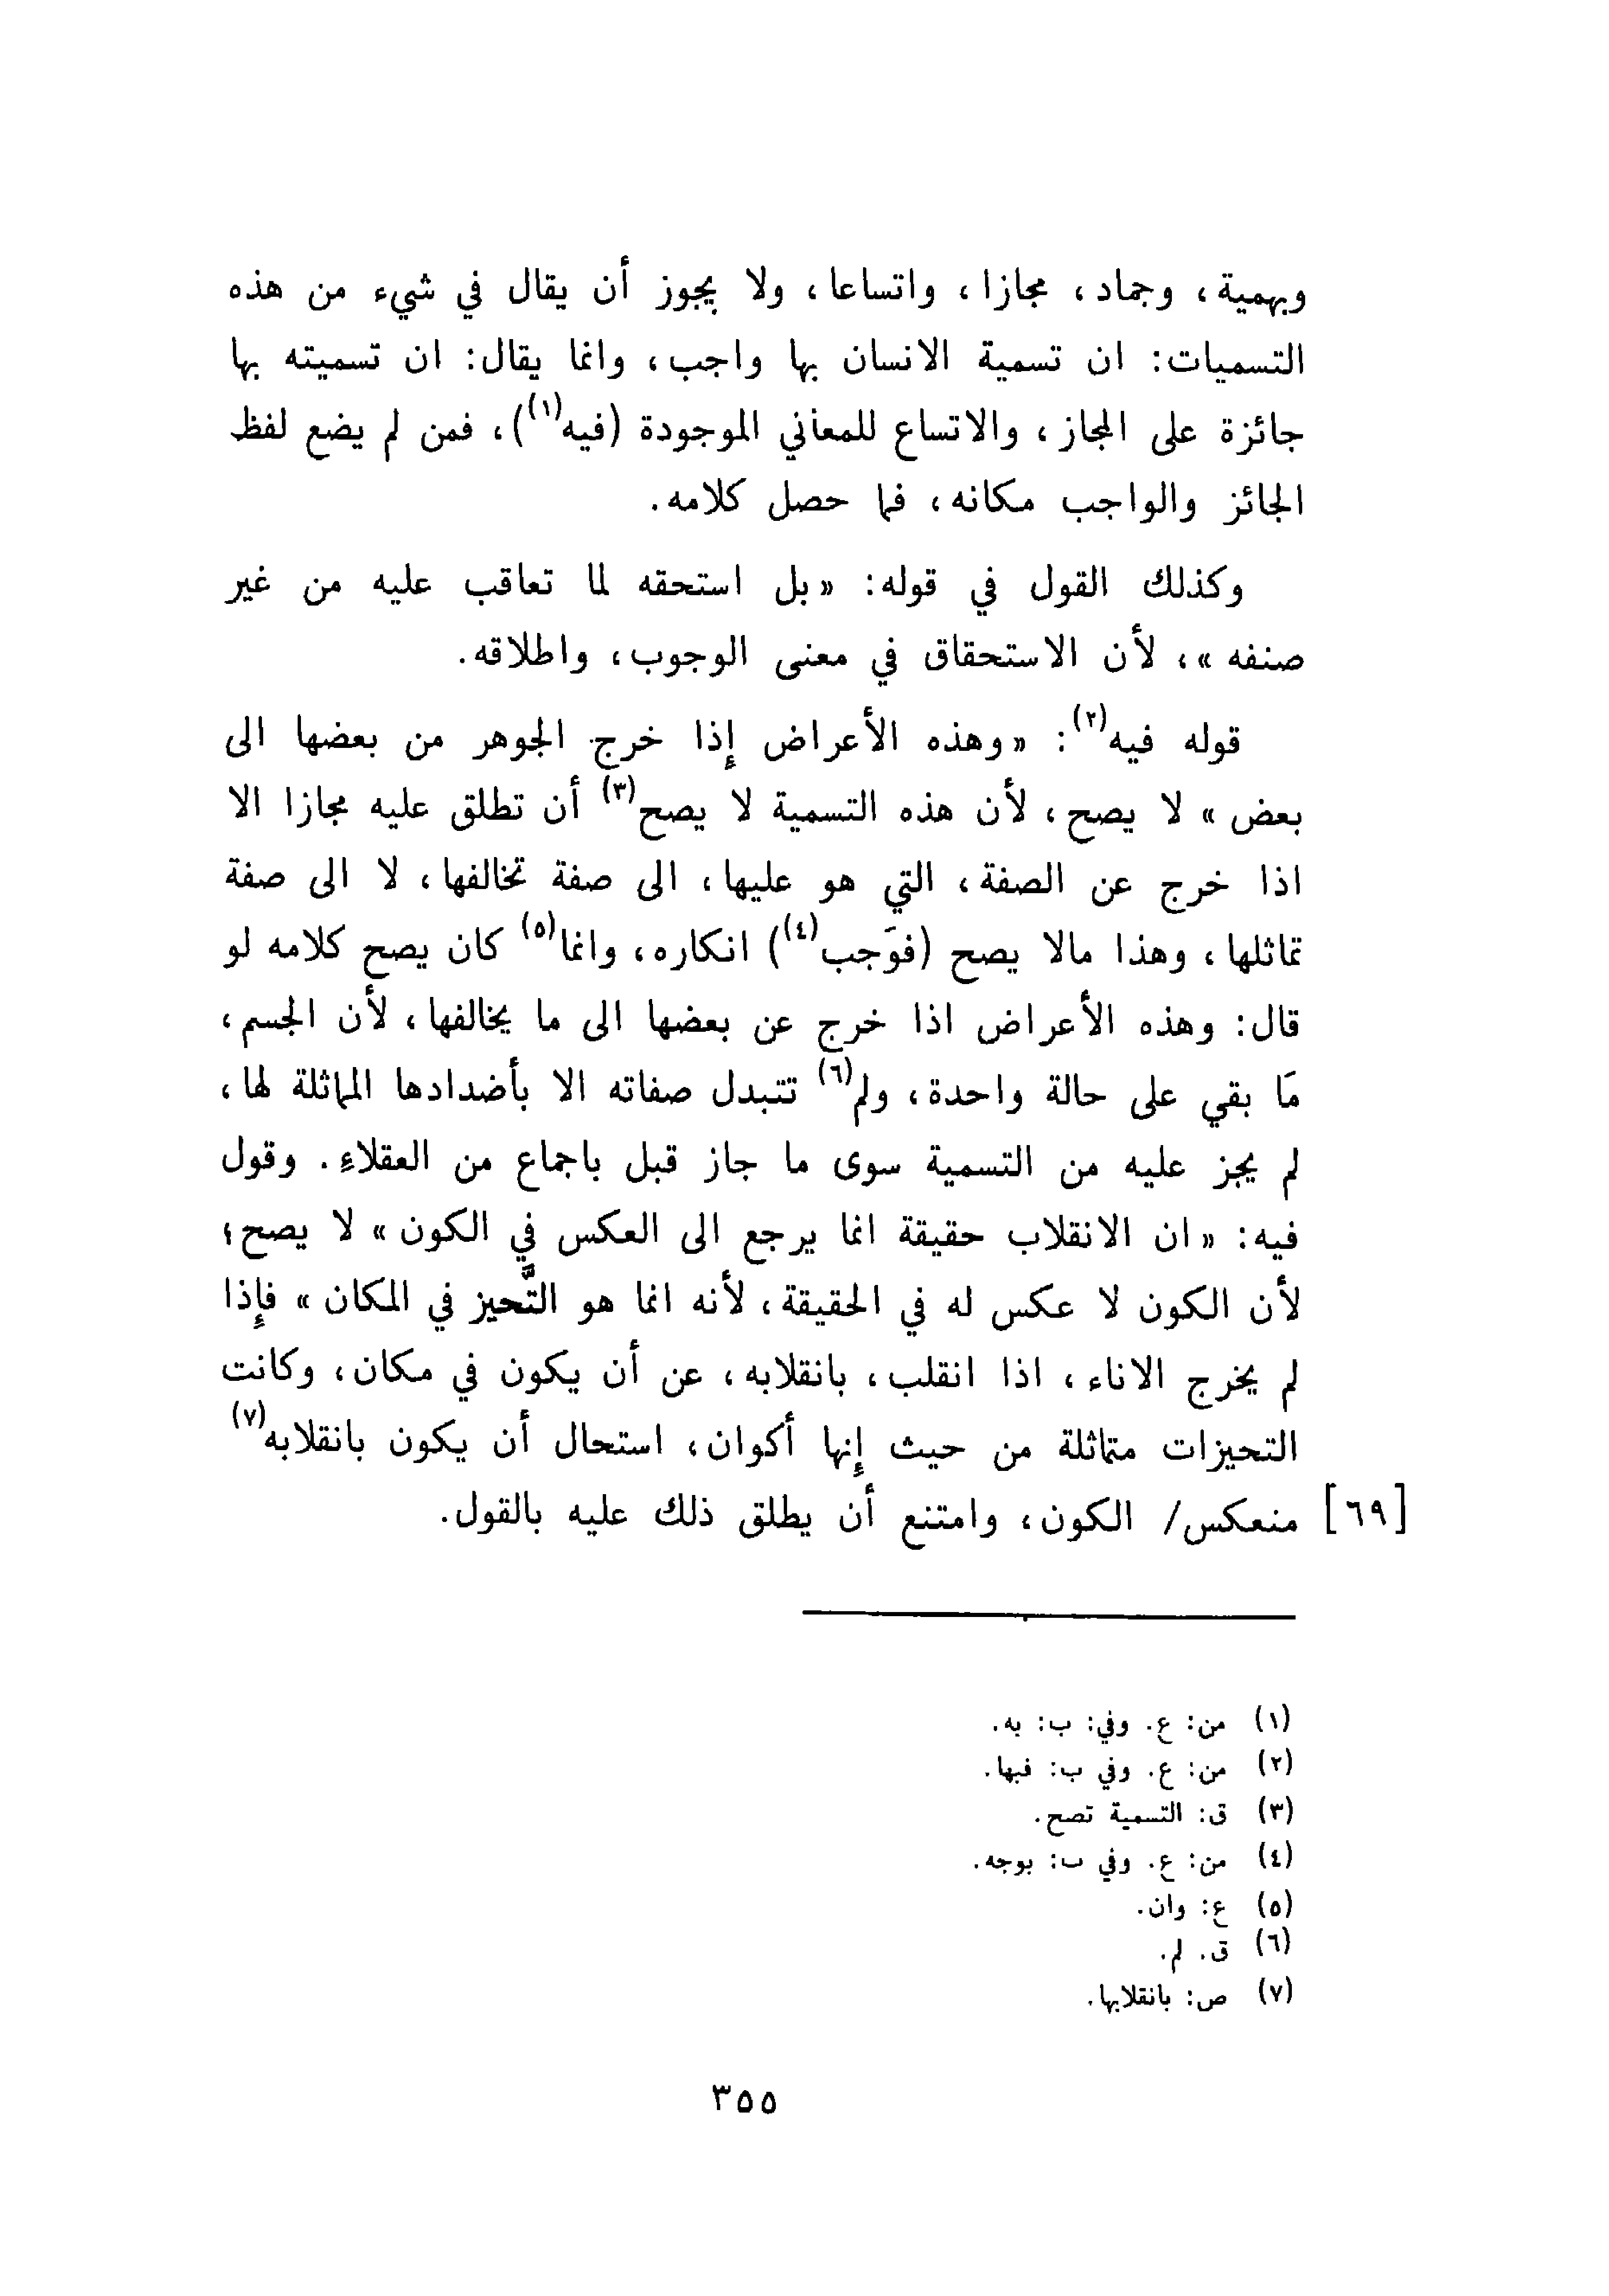 وبهمية، وجماد، مجازا، واتساعا، ولا يجوز أن يقال في شيء من هذه
التسميات: ان تسمية الانسان بها واجب، وانما يقال: ان تسميته بها
جائزة على المجاز، والاتساع للمعاني الموجودة (فيه(١))، فمن لم يضع لفظ
الجائز والواجب مكانه، فما حصل كلامه.
وكذلك القول في قوله: «بل استحقه لما تعاقب عليه من غير
صنفه»، لأن الاستحقاق في معنى الوجوب، واطلاقه.
قوله فيه(٢): «وهذه الأعراض إذا خرج الجوهر من بعضها الى
بعض» لا يصح، لأن هذه التسمية لا يصح(٣) أن تطلق عليه مجازا الا
اذا خرج عن الصفة، التي هو عليها، الى صفة تخالفها، لا الى صفة
تماثلها، وهذا مالا يصح (فوَجب(٤)) انكاره، وانما(٥) كان يصح كلامه لو
قال: وهذه الأعراض اذا خرج عن بعضها الى ما يخالفها، لأن الجسم،
مَا بقي على حالة واحدة، ولم(٦) تتبدل صفاته الا بأضدادها المماثلة لها،
لم يجز عليه من التسمية سوى ما جاز قبل باجماع من العقلاءِ. وقول
فيه: «ان الانقلاب حقيقة انما يرجع الى العكس في الكون» لا يصح؛
لأن الكون لا عكس له في الحقيقة، لأنه انما هو التَّحيز في المكان» فإذا
لم يخرج الاناء، اذا انقلب، بانقلابه، عن أن يكون في مكان، وكانت
التحيزات متماثلة من حيث إنها أكوان، استحال أن يكون بانقلابه(٧)
[٦٩] منعكس/ الكون، وامتنع أن يطلق ذلك عليه بالقول.
(١) من: ع. وفي: ب: به.
(٢) من: ع. وفي ب: فبها.
(٣) ق: التسمية تصح.
(٤) من: ع. وفي ب: بوجه.
(٥) ع: وان.
(٦) ق. لم.
(٧) ص: بانقلابها.
٣٥٥